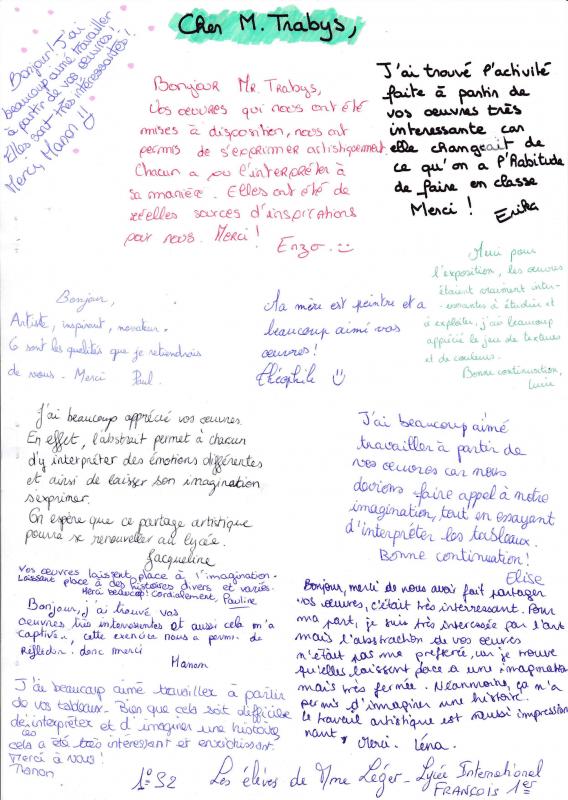 Cher M. Trabys,
Bonjour! J'ai
beaucoup aimé travailler
à partir de vos œuvres!
Elles sont très intéressantes!
Merci, Manon
Bonjour Mr. Trabys,
Vos œuvres qui nous ont été
mises à disposition, nous ont
permis de s'exprimer artistiquement
Chacun a pu l'interpréter à
sa manière. Elles ont été de
réelles sources d'inspirations
pour nous. Merci!
Enzo.
J'ai trouvé l'activité
faite à partir de
vos œuvres très
interessante car
elle changeait de
ce qu'on a l'habitude
de faire en classe
Merci!
Erika
Merci pour
l'exposition, les œuvres
étaient vraiment inter-
essantes à étudier et
à exploiter, j'ai beaucoup
apprécié le jeu de textures
et de couleurs.
Bonne continuation,
Lucie
Bonjour,
Artiste, inspirant, novateur.
6 sont les qualités que je retiendrais
de vous - Merci Paul.
Ma mère est peintre et a
beaucoup aimé vos
œuvres!
Théophile
J'ai beaucoup apprécié vos œuvres.
En effet, l'abstrait permet à chacun
d'y interpréter des émotions différentes
et ainsi de laisser son imagination
s'exprimer.
On espère que ce partage artistique
pourra se renouveller au lycée.
Jacqueline
J'ai beaucoup aimé
travailler à partir de
vos œuvres car nous
devions faire appel à notre
imagination, tout en essayant
d'interpréter les tableaux.
Bonne continuation!
Elise
Vos œuvres laissent place à l'imagination.
Laissant place à des histoires divers et variés.
Merci beaucoup! Cordialement, Pauline
Bonjour, j'ai trouvé vos
œuvres très interessentes et aussi cela m'a
captivé, cette exercice nous a permi de
réflechir. donc merci
Manon
Bonjour, merci de nous avoir fait partager
vos œuvres, c'était très interressant. Pour
ma part, je suis très interessée par l'art
mais l'abstraction de vos œuvres
n'était pas ma préférée, car je trouve
qu'elles laissent place a une imagination
mais très fermée. Néanmoins, ça m'a
permis d'imaginer une histoire.
le travail artistique est aussi impression
nant. Merci. Léna.
J'ai beaucoup aimé travailler à partir
de vos tableaux. Bien que cela soit difficile
de interpréter et d'imaginer une histoire,
cela a été très intéressant et enrichissant.
Merci à vous!
Manon
1°S2 Les élèves de Mme Léger - Lycée International
FRANÇOIS 1er